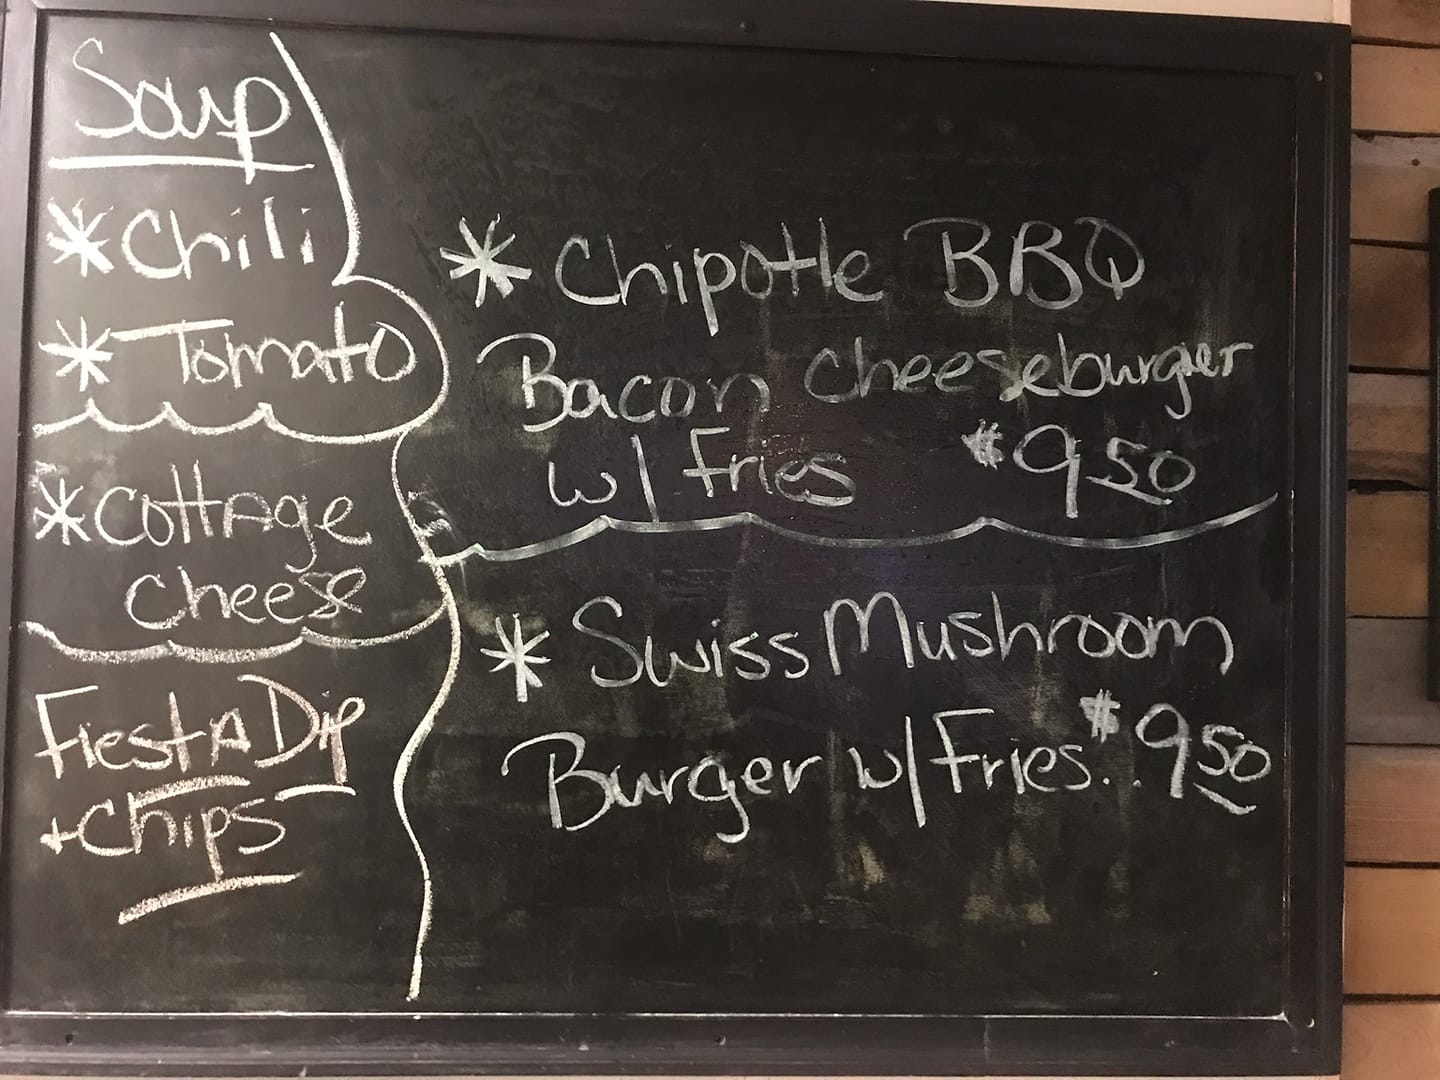 Soup
*Chili
*Tomato
*Cottage
Cheese
Fiesta Dip
+Chips
*Chipotle BBQ
Bacon Cheeseburger
w/ Fries $9.50
*Swiss Mushroom
Burger w/Fries..$9.50